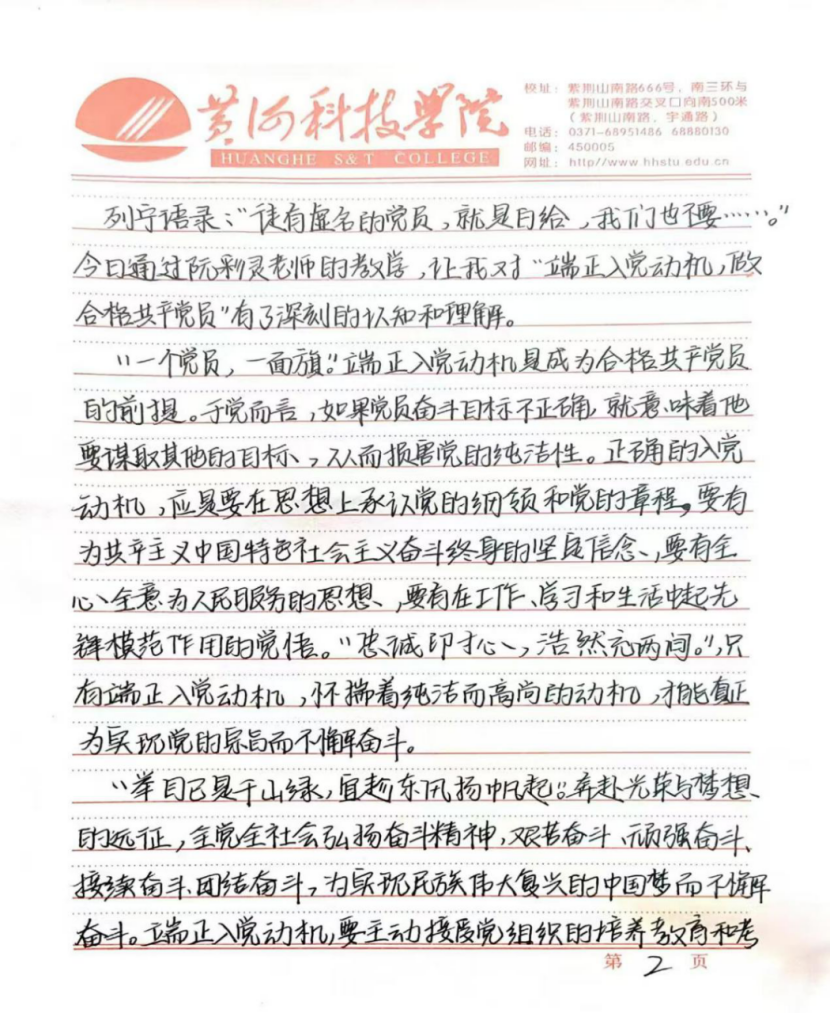 黄河科技学院
HUANGHE S&T COLLEGE
校址：紫荆山南路666号，南三环与
紫荆山南路交叉口向南500米
（紫荆山南路，宇通路）
电话：0371-68951486 68880130
邮编：450005
网址：http//www hhstu edu.cn
列宁语录：“徒有虚名的党员，就是白给，我们也不要……。”
今日通过阮彩灵老师的教学，让我对“端正入党动机，做
合格共产党员”有了深刻的认知和理解。
“一个党员，一面旗。”端正入党动机是成为合格共产党员
的前提。于党而言，如果党员奋斗目标不正确，就意味着他
要谋取其他的目标，从而损害党的纯洁性。正确的入党
动机，应是要在思想上承认党的纲领和党的章程，要有
为共产主义中国特色社会主义奋斗终身的坚定信念，要有全
心全意为人民服务的思想，要有在工作、学习和生活中起先
锋模范作用的觉悟。“忠诚印寸心，浩然充两间。”，只
有端正入党动机，怀揣着纯洁而高尚的动机，才能真正
为实现党的宗旨而不懈奋斗。
“举目已是千山绿，宜趁东风扬帆起。”奔赴光荣与梦想
的远征，全党全社会弘扬奋斗精神，艰苦奋斗、顽强奋斗、
接续奋斗、团结奋斗，为实现民族伟大复兴的中国梦而不懈
奋斗。端正入党动机，要主动接受党组织的培养教育和考
第 2 页